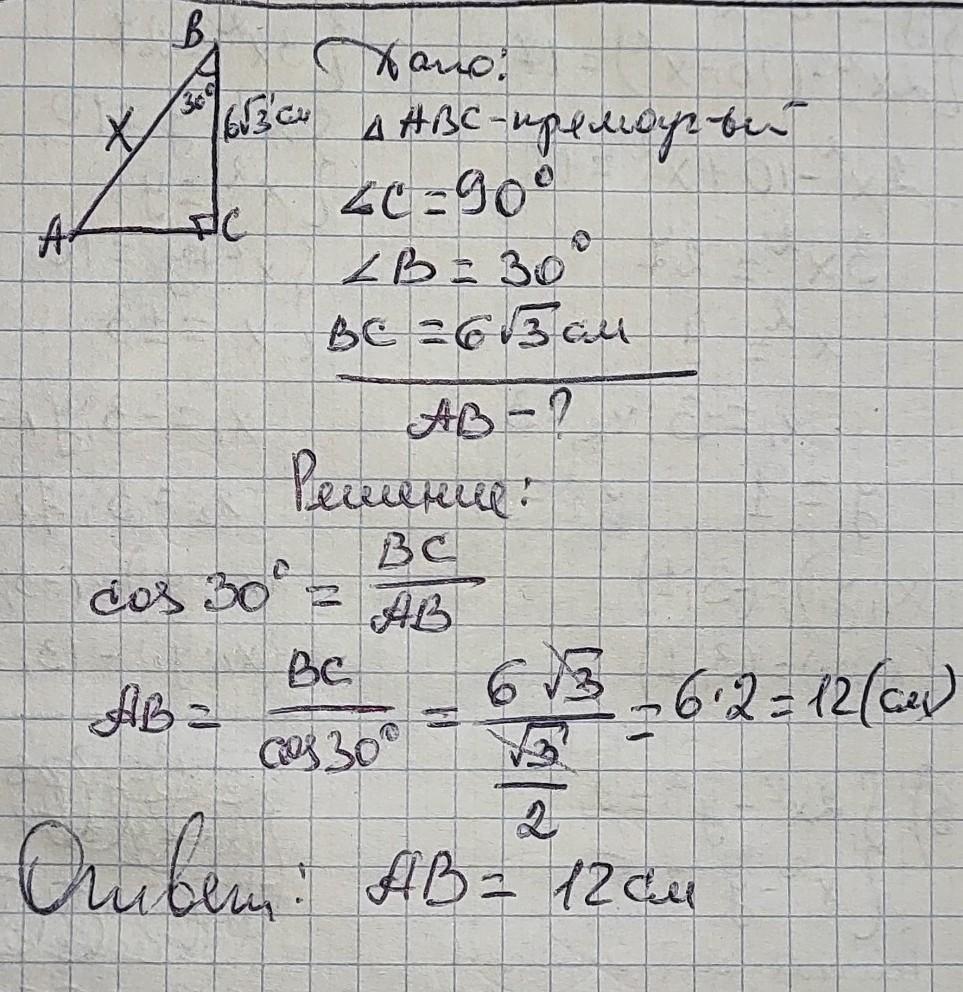 B
30°
6√3 см
X
A
C
Дано:
△ABC-прямоуг-ый
∠C = 90°
∠B = 30°
BC = 6√3 см
AB - ?
Решение:
cos 30° = BC/AB
AB = BC/cos30° = 6√3/(√3/2) = 6·2 = 12 (см)
Ответ: AB = 12 см